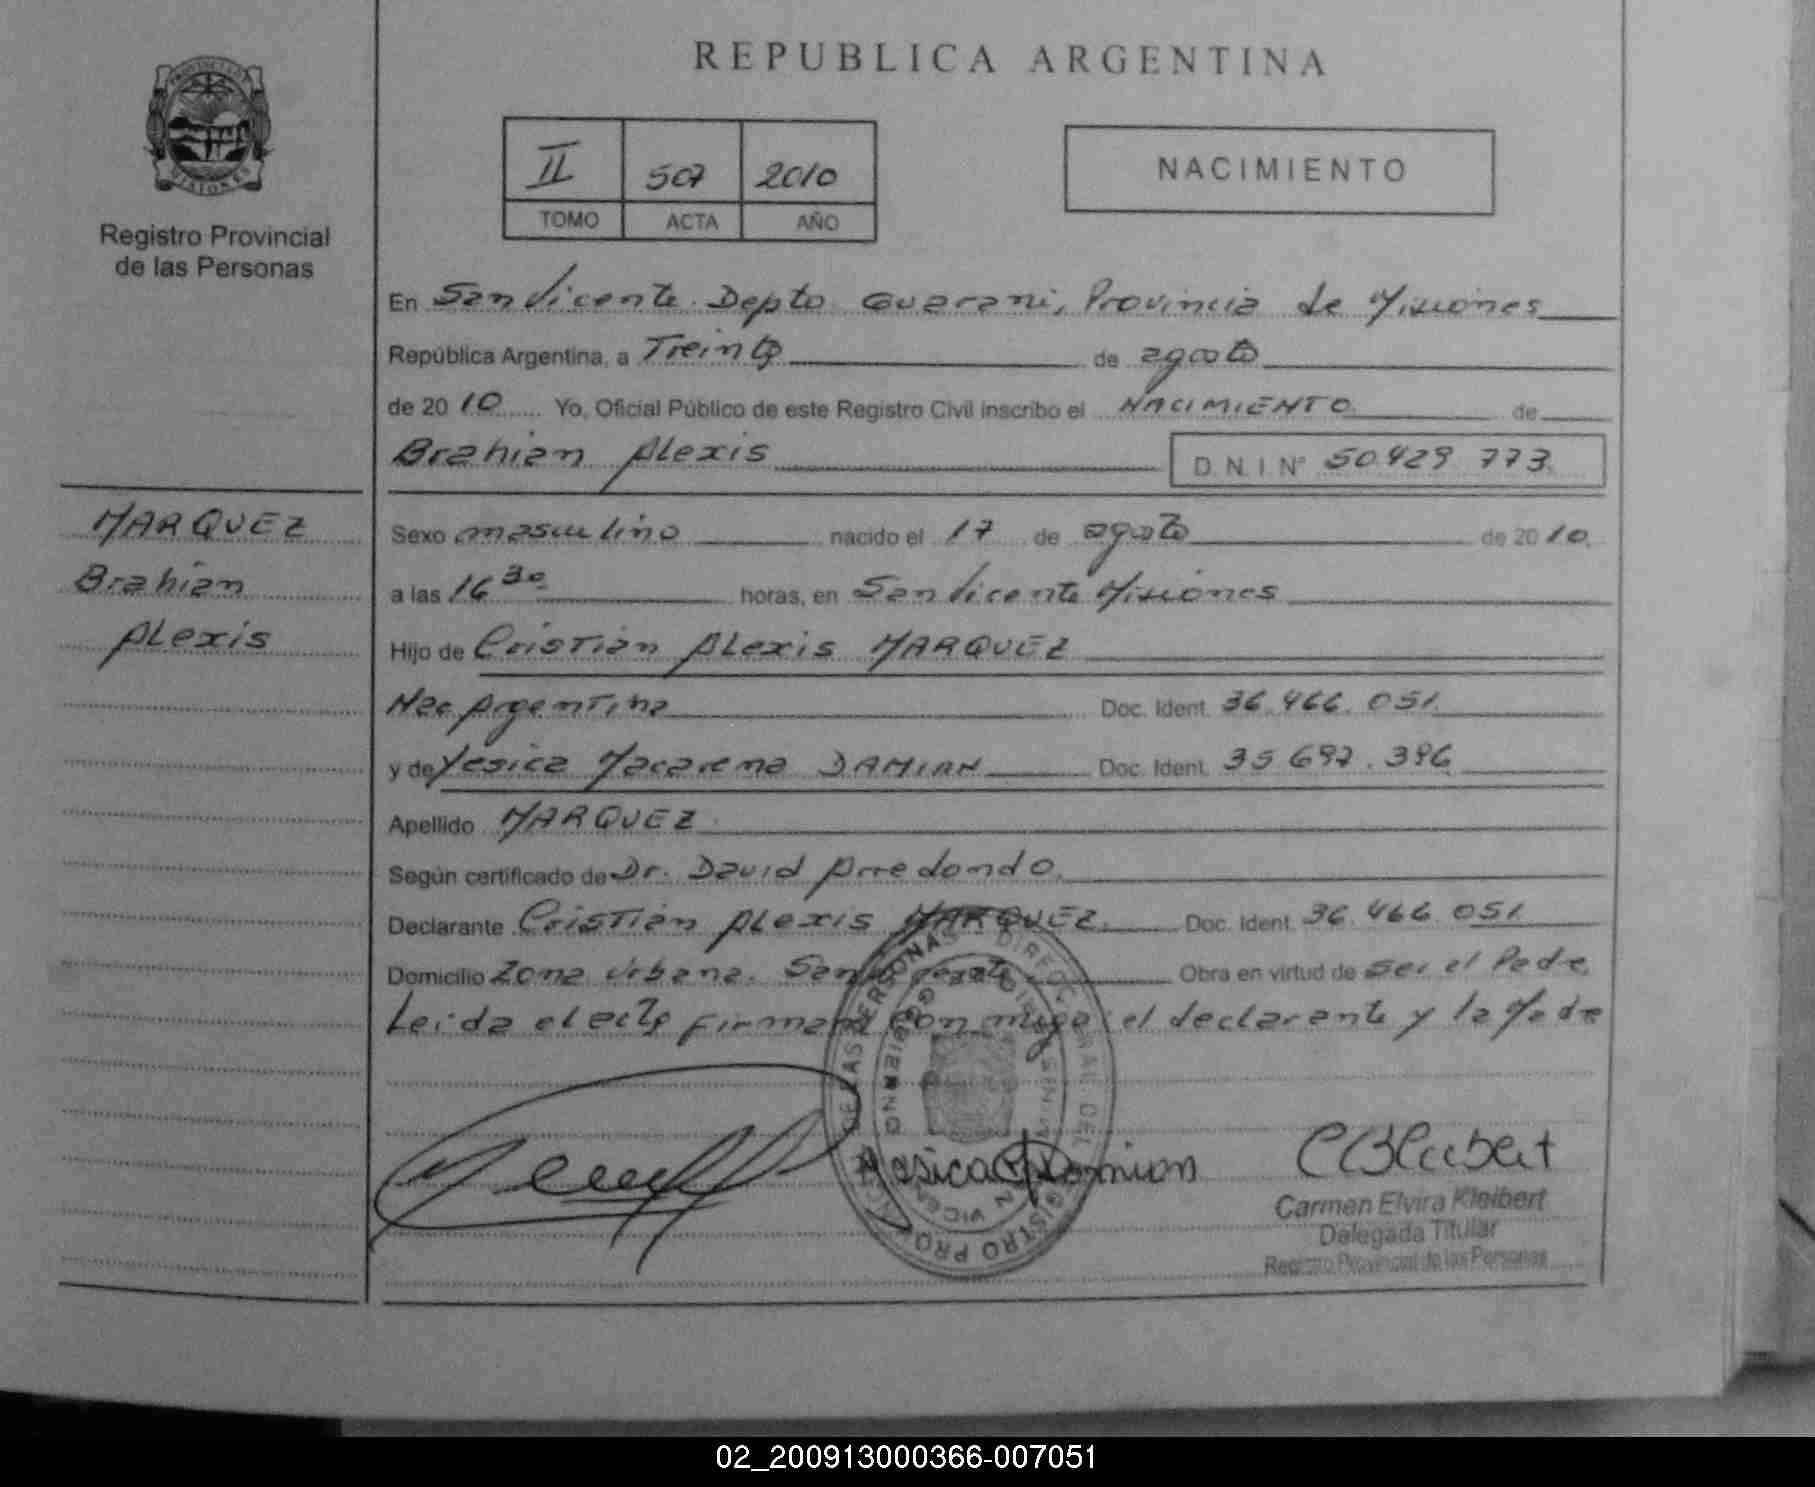 REPUBLICA ARGENTINA
PROVINCIA DE MISIONES
Registro Provincial
de las Personas
II 507 2010
TOMO ACTA AÑO
NACIMIENTO
En San Vicente Depto Guarani, Provincia de Misiones
República Argentina, a Treinta de agosto
de 2010 Yo, Oficial Público de este Registro Civil inscribo el NACIMIENTO de
Brahian Alexis D.N.I. Nº 50.429 773.
MARQUEZ
Brahian
Alexis
Sexo masculino nacido el 17 de agosto de 2010
a las 16 30 horas, en San Vicente Misiones
Hijo de Cristian Alexis MARQUEZ
Nac Argentina Doc. Ident. 36.466.051.
y de Yesica Macarena DAMIAN Doc. Ident. 35 697.396
Apellido MARQUEZ
Según certificado de Dr. David Arredondo.
Declarante Cristian Alexis MARQUEZ. Doc. Ident. 36.466.051
Domicilio Zona Urbana. San Vicente Obra en virtud de ser el Padre
Leida el acta firman con migo: el declarante y la Madre
Carmen Elvira Kleibert
Delegada Titular
Registro Provincial de las Personas
02_200913000366-007051